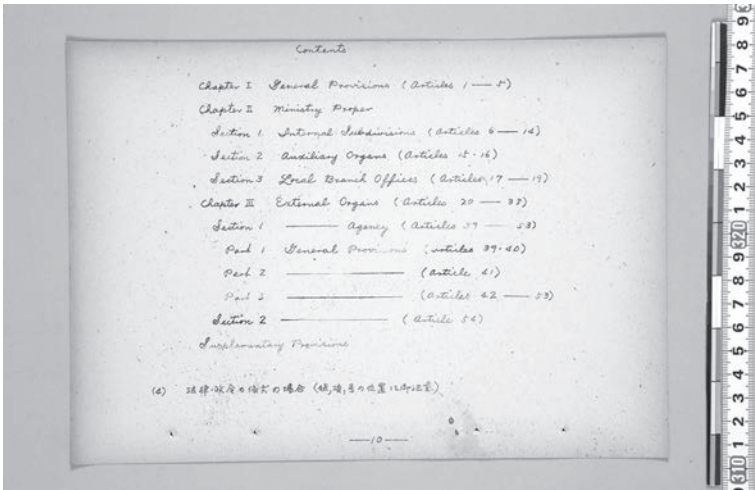 Contents
Chapter I General Provisions (Articles 1 — 5)
Chapter II Ministry Proper
Section 1 Internal Subdivisions (Articles 6 — 14)
Section 2 Auxiliary Organs (Articles 15・16)
Section 3 Local Branch Offices (Articles 17 — 19)
Chapter III External Organs (Articles 20 — 38)
Section 1 ——— Agency (Articles 39 — 53)
Part 1 General Provisions (Articles 39・40)
Part 2 ——— (Article 41)
Part 3 ——— (Articles 42 — 53)
Section 2 ——— (Article 54)
Supplementary Provisions
(4) 法律・政令の条文の場合 (條,項,号の位置に御注意)
—10—